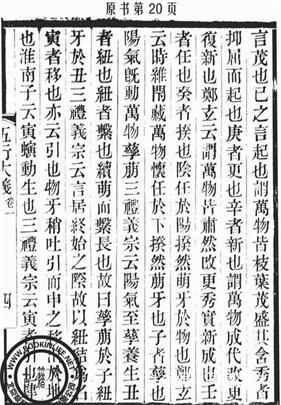 原书第20页
言茂也己之言起也謂萬物皆枝葉茂盛其含秀者
抑屈而起也庚者更也辛者新也謂萬物成代改更
復新也鄭玄云謂萬物皆肅然改更秀實新成也壬
者任也癸者揆也陰任於陽揆然萌牙於物也鄭玄
云時維閉藏萬物懷任於下揆然萌牙也子者孳也
陽氣既動萬物孳萌三禮義宗云陽氣至孳養生丑
者紐也紐者繫也續萌而繫長也故曰孳萌於子紐
牙於丑三禮義宗云言居終始之際故以紐結為名
寅者移也亦云引也物牙稍吐引而申之移出於地
也淮南子云寅螾動生也三禮義宗云寅者
五行大義卷一
四